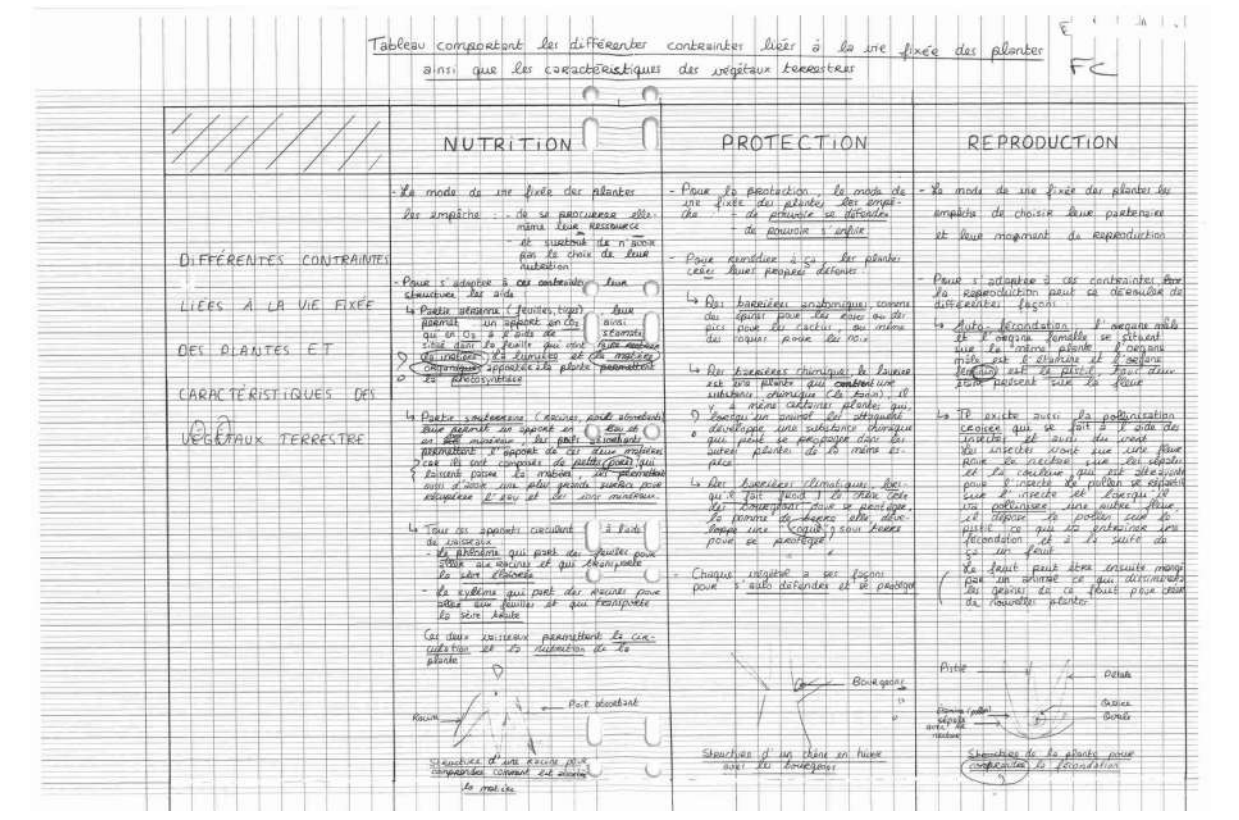 Tableau comportant les différentes contraintes liées à la vie fixée des plantes
ainsi que les caractéristiques des végétaux terrestres
FC
NUTRITION
PROTECTION
REPRODUCTION
DIFFÉRENTES CONTRAINTES
LIÉES À LA VIE FIXÉE
DES PLANTES ET
CARACTÉRISTIQUES DES
VÉGÉTAUX TERRESTRE
- Le mode de vie fixée des plantes
les empêche : - de se procurer elle-
même leur ressource
- et surtout de n'avoir
pas le choix de leur
nutrition
- Pour s'adapter à ces contraintes leur
structure les aide
↳ Partie aérienne (feuilles, tiges) leur
permet un apport en CO2 ainsi
qu'en O2 à l'aide de stomate
situé dans la feuille qui vont
la lumière et la matière
organique apportée à la plante permettent
la photosynthèse
↳ Partie souterraine (racines, poils absorbants)
leur permet un apport en eau et
en minéraux, les poils absorbants
permettent l'apport de ces deux matières
car ils sont composés de petits pores qui
laissent passer la matière
ainsi d'avoir une plus grande surface pour
récupérer l'eau et les ions minéraux.
↳ Tous ces apports circulent à l'aide
de vaisseaux
- le phloème qui part des feuilles pour
aller aux racines et qui transporte
la sève élaborée
- le xylème qui part des racines pour
aller aux feuilles et qui transporte
la sève brute
Ces deux vaisseaux permettent la cir-
culation et la nutrition de la
plante
Racine
Poil absorbant
Structure d'une racine pour
comprendre comment est
la matière
- Pour la protection, le mode de
vie fixée des plantes les empê-
che : - de pouvoir se défendre
- de pouvoir s'enfuir
- Pour remédier à ça, les plantes
créer leurs propres défenses :
↳ Des barrières anatomiques comme
des épines pour les roses ou des
pics pour les cactus, ou même
des coques pour les noix
↳ Des barrières chimiques, le laurier
est une plante qui contient une
substance chimique (le tanin), il
y a même certaines plantes qui,
lorsqu'un animal les attaquent
développe une substance chimique
qui peut se propager dans les
autres plantes de la même es-
pèce
↳ Des barrières climatiques, lors-
qu'il fait froid, le chêne crée
des bourgeons pour se protéger,
la pomme de terre elle déve-
loppe une coque sous terre
pour se protéger
- Chaque végétal a ses façons
pour s'auto défendre et se protéger
Bourgeons
Structure d'un chêne en hiver
avec les bourgeons
- Le mode de vie fixée des plantes les
empêche de choisir leur partenaire
et leur moment de reproduction
- Pour s'adapter à ces contraintes
la reproduction peut se dérouler de
différentes façons :
↳ Auto-fécondation l'organe mâle
et l'organe femelle se situent
sur la même plante, l'organe
mâle est l'étamine et l'organe
femelle est le pistil, tous deux
étant présent sur la fleur
↳ Il existe aussi la pollinisation
croisée qui se fait à l'aide des
insectes et aussi du vent
les insectes vont sur une fleur
pour le nectar sur les sépales
et la couleur qui est attrayante
pour l'insecte le pollen se répartit
sur l'insecte et lorsqu'il
va polliniser une autre fleur,
il dépose le pollen sur le
pistil ce qui va entraîner une
fécondation et à la suite de
ça un fruit
Le fruit peut être ensuite mangé
par un animal ce qui disséminera
les graines de ce fruit pour créer
de nouvelles plantes
Pistil
Pétale
Etamine (pollen)
sépale
avec le
nectar
Ovaire
Ovule
Structure de la plante pour
comprendre la fécondation